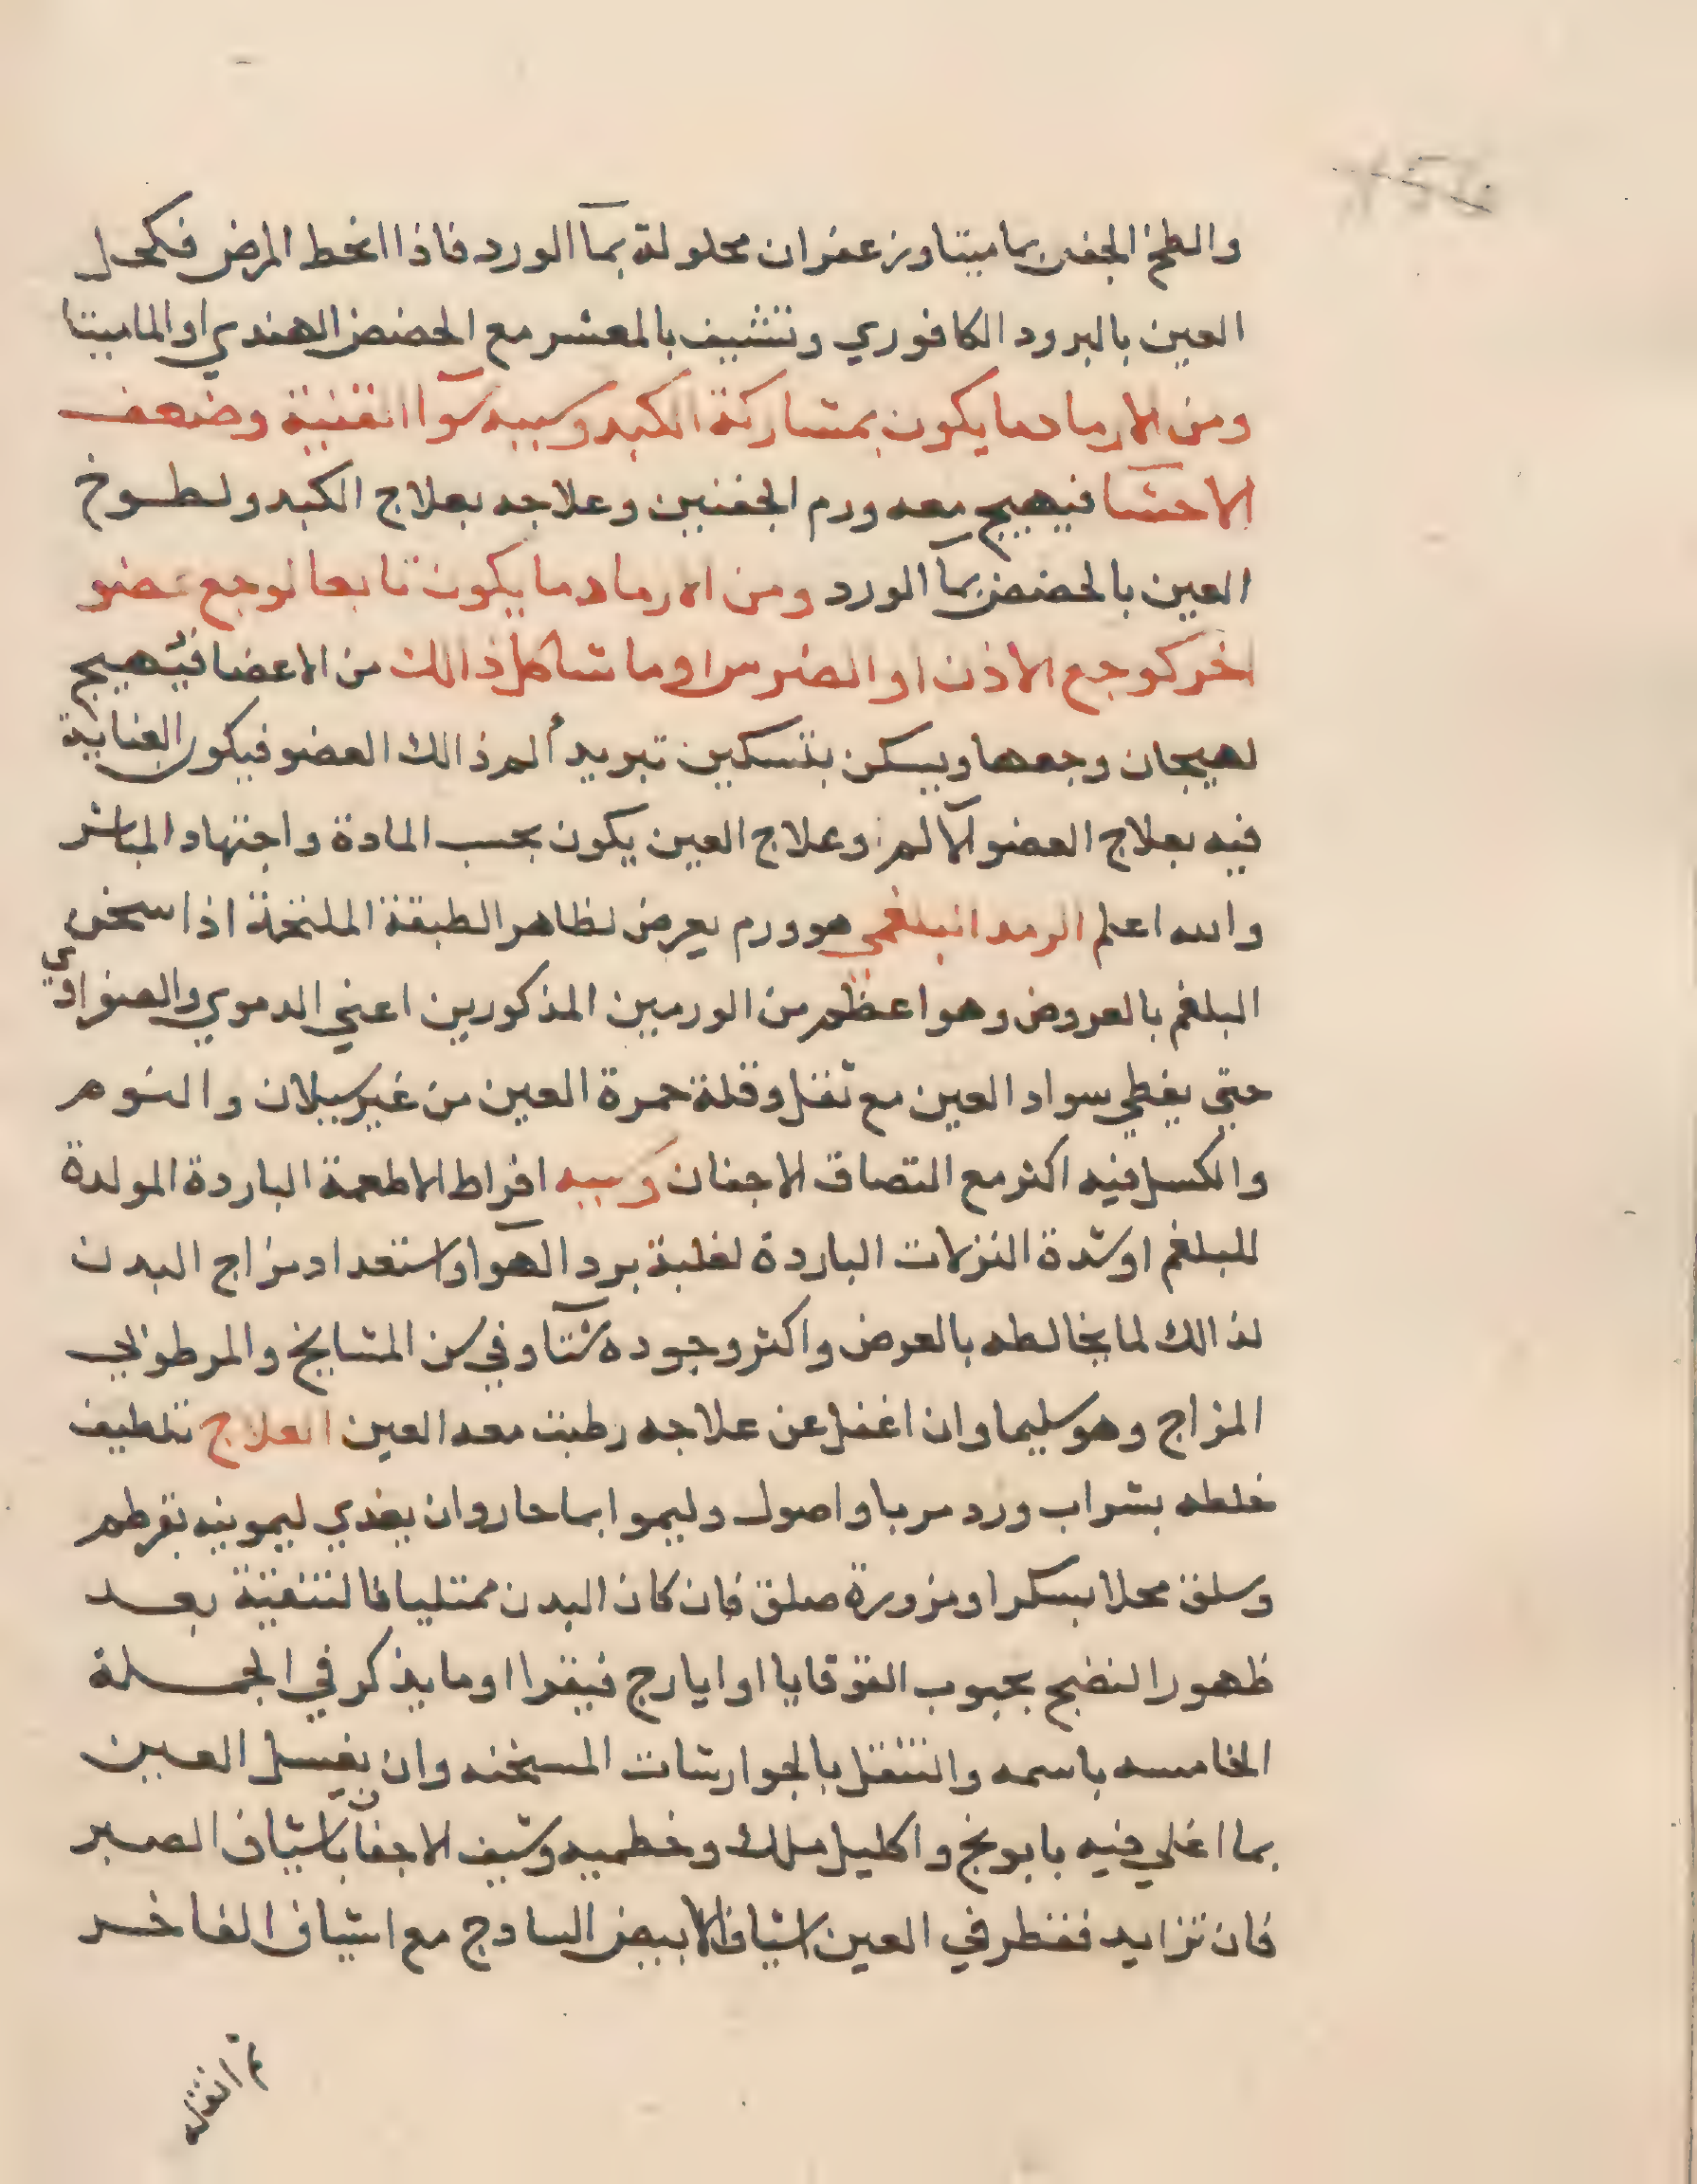 والطخ الجفن بماميتا وزعفران محلولة بمآ الورد فاذا انحط المرض فكحل
العين بالبرود الكافوري وتشيف بالمعشر مع الحضض الهندي او الماميتا
ومن الارماد ما يكون بمشاركة الكبد وسببه سوٓا القنية وضعف
الاحشآ فيهيج معه ورم الجفنين وعلاجه بعلاج الكبد ولطوخ
العين بالحضض بمآ الورد ومن الارماد ما يكون تابعا لوجع عضو
اخر كوجع الاذن او الضرس او ما شاكل ذالك من الاعضا فيتهيج
لهيجان وجعها ويسكن بتسكين تبريد ألم ذالك العضو فيكون العناية
فيه بعلاج العضو الآلم وعلاج العين يكون بحسب المادة واجتهاد المباشر
والله اعلم الرمد البلغمي هو ورم يعرض لظاهر الطبقة الملتحمة اذا سخن
البلغم بالعروض وهو اعظم من الورمين المذكورين اعني الدموي والصفراوي
حتى يغطي سواد العين مع ثقل وقلة حمرة العين من غير سيلان والنوم
والكسل فيه اكثر مع التصاق الاجفان وسببه افراط الاطعمة الباردة المولدة
للبلغم او شدة النزلات الباردة لغلبة برد الهوآ او استعداد مزاج البدن
لذالك لما يخالطه بالعرض واكثر وجوده شتآ وفي سن المشايخ والمرطوبي
المزاج وهو سليما وان اغفل عن علاجه رطبت معه العين العلاج تلطيف
خلطه بشراب ورد مربا واصول وليموا بما حار وان يغدي ليمونيه بقرطم
وسلق محلا بسكر او مزورة صلق فان كان البدن ممتليا فالتنقية بعد
ظهور النضج بحبوب القوقايا او ايارج فيقرا او ما يذكر في الجملة
الخامسه باسمه والتنقل بالجوارشات المسخنه وان يغسل العين
بما اغلي فيه بابونج واكليل ملك وخطميه وشيف الاجفان باشياف الصبر
فان تزايد فقطر في العين اشياف الابيض السادج مع اشياف الفاخر